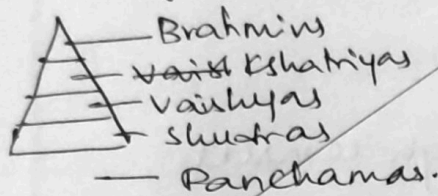 Brahmins
Kshatriyas
Vaishyas
Shudras
Panchamas.